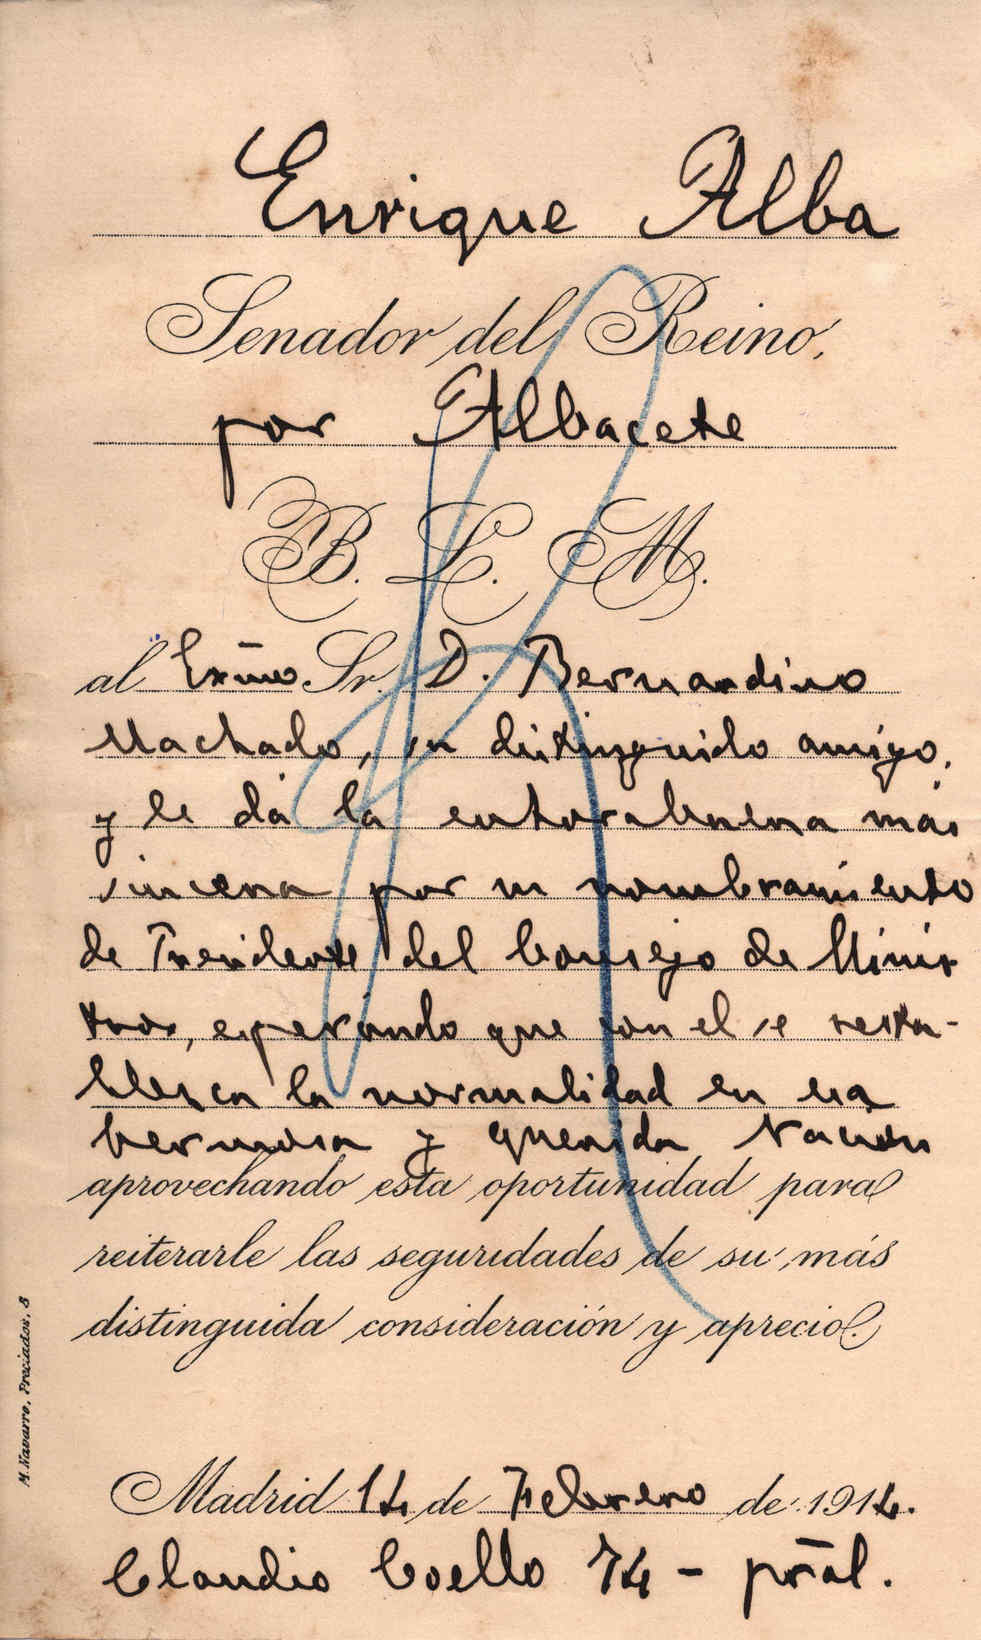 Enrique Alba
Senador del Reino,
por Albacete
B. L. M.
al Exmo Sr. D. Bernardino
Machado, su distinguido amigo,
y le dá la enhorabuena más
sincera por su nombramiento
de Presidente del Consejo de Minis
tros, esperando que con el se resta-
blezca la normalidad en esa
hermosa y querida Nación
aprovechando esta oportunidad para
reiterarle las seguridades de su más
distinguida consideración y aprecio.
Madrid 14 de Febrero de 1914.
Claudio Coello 74 - pral.
M. Navarro, Preciados, 8